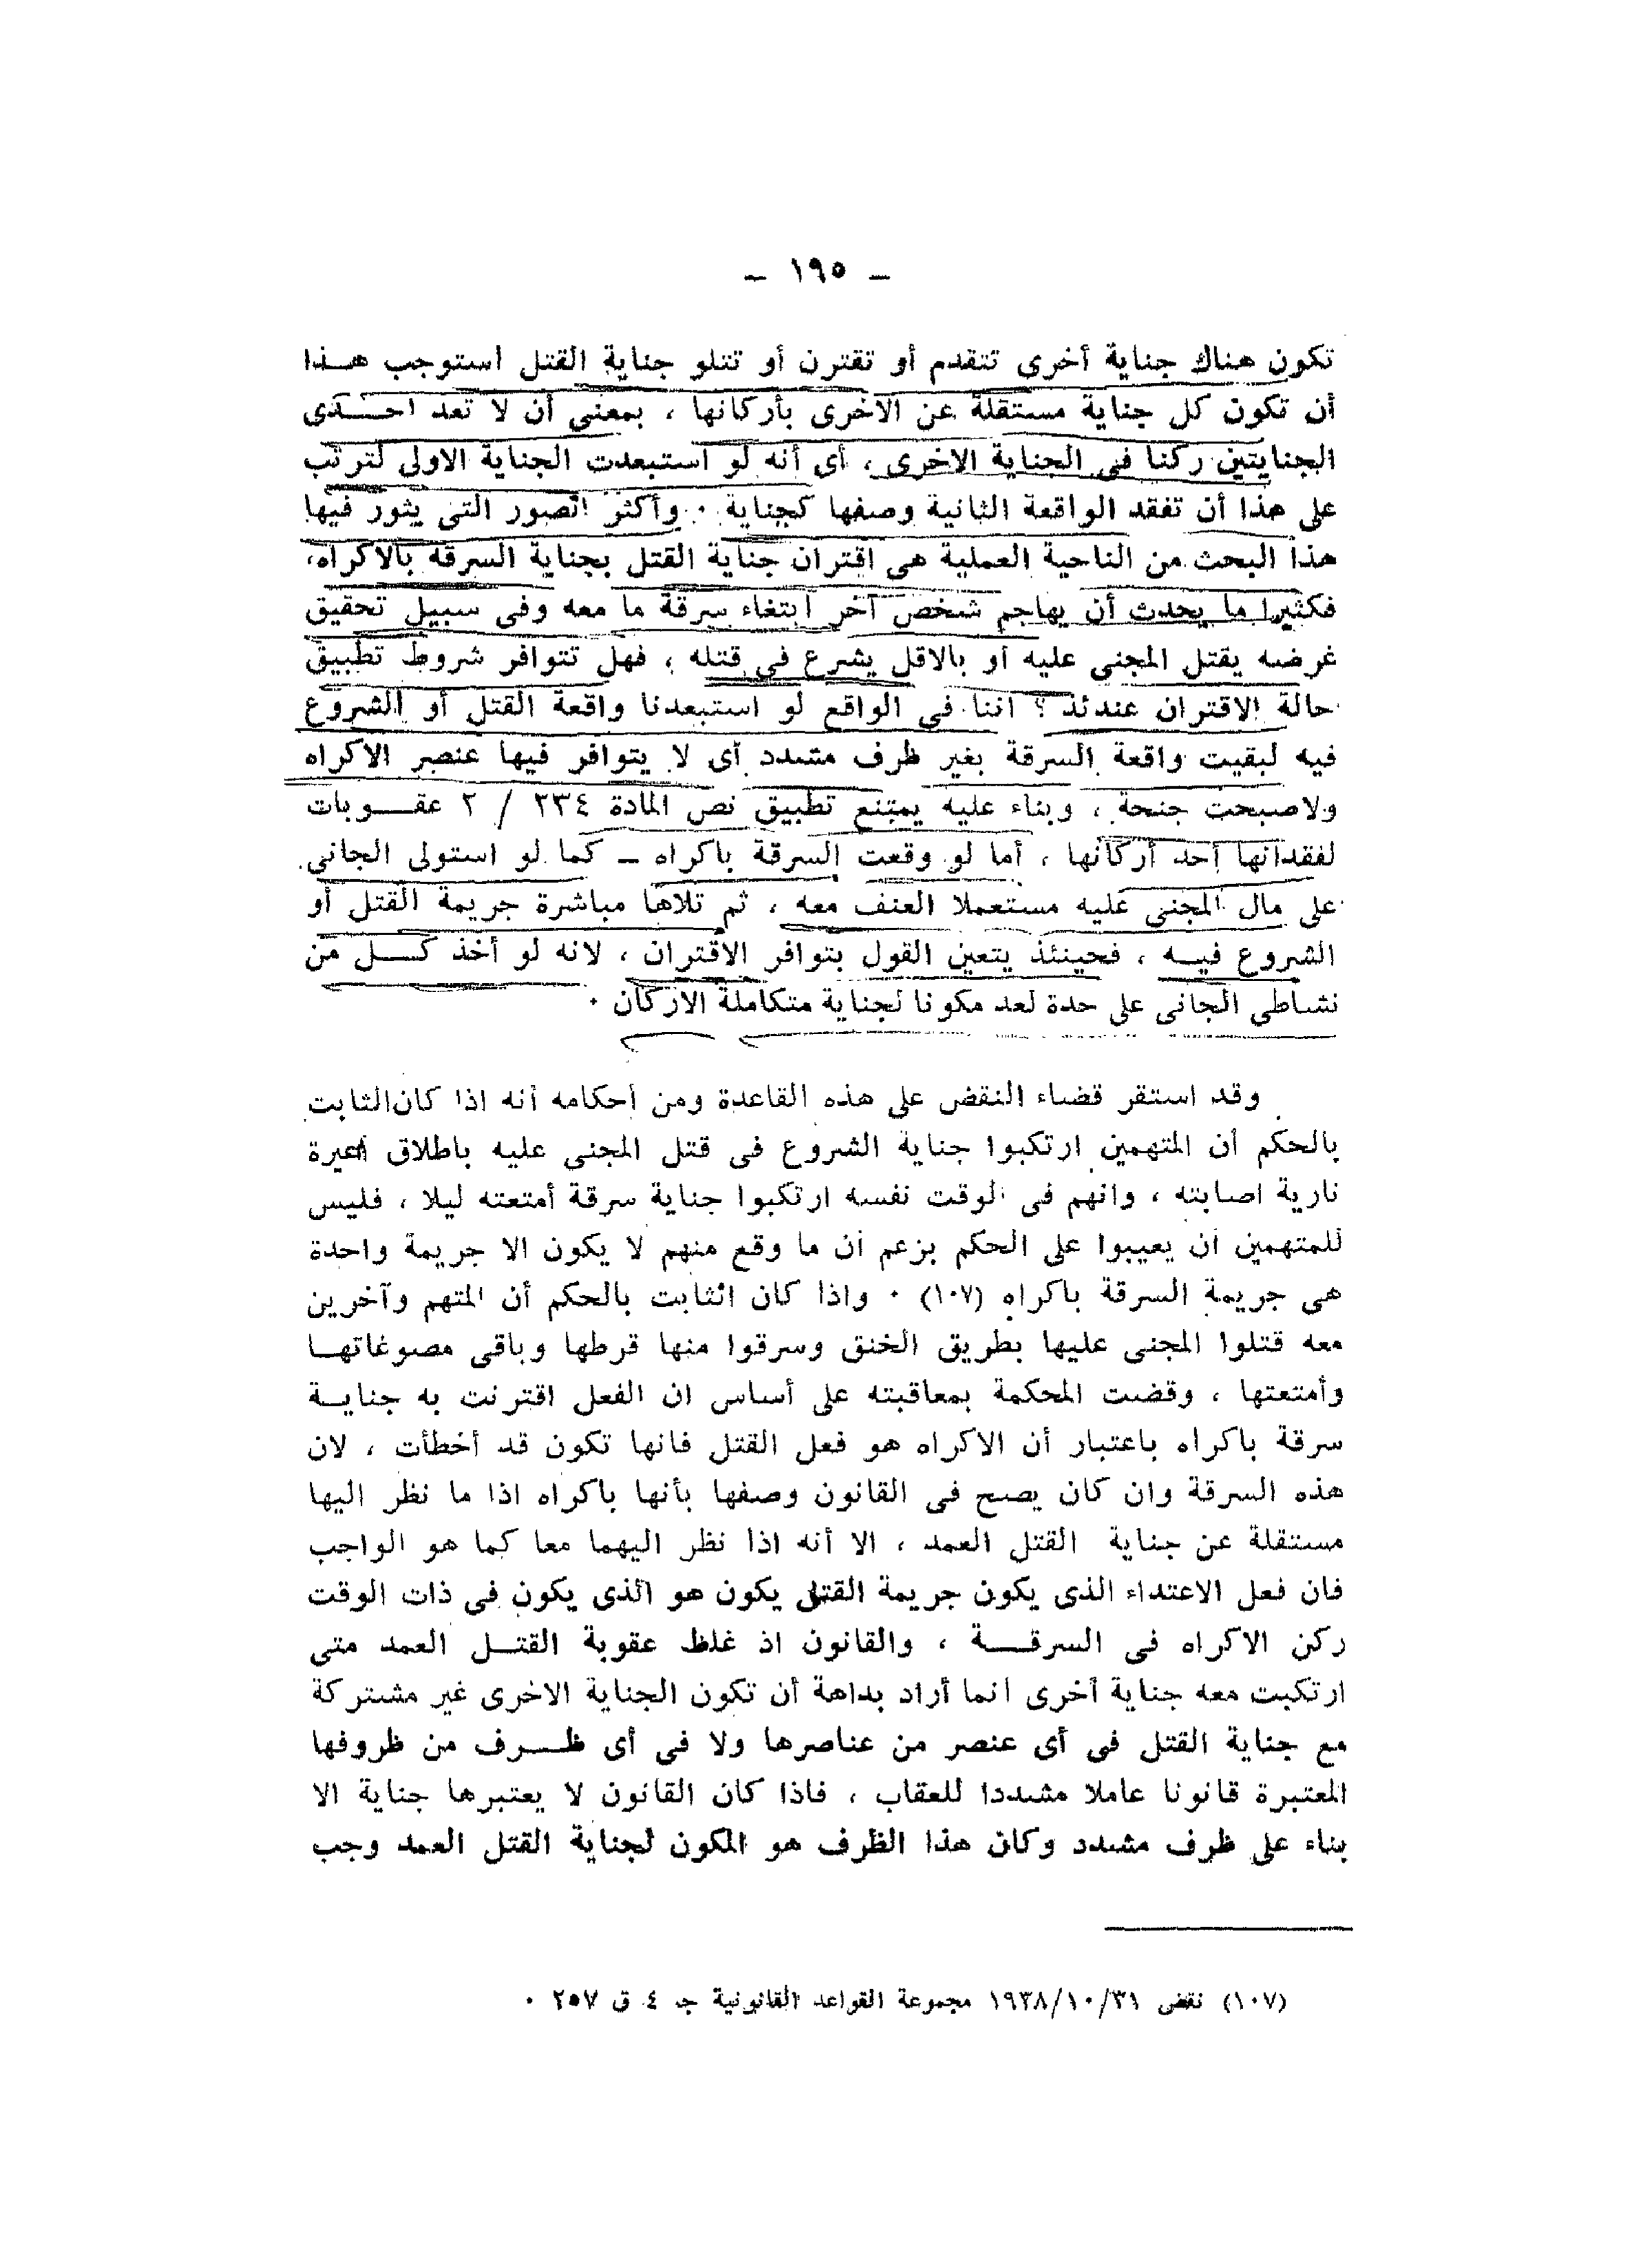 – ١٩٥ –
تكون هناك جناية أخرى تتقدم أو تقترن أو تتلو جناية القتل استوجب هــذا
أن تكون كل جناية مستقلة عن الاخرى بأركانها ، بمعنى أن لا تعد احــدى
الجنايتين ركنا فى الجناية الاخرى ، أى أنه لو استبعدت الجناية الاولى لترتب
على هذا أن تفقد الواقعة الثانية وصفها كجناية ٠ وأكثر الصور التى يثور فيها
هذا البحث من الناحية العملية هى اقتران جناية القتل بجناية السرقة بالاكراه،
فكثيرا ما يحدث أن يهاجم شخص آخر ابتغاء سرقة ما معه وفى سبيل تحقيق
غرضه يقتل المجنى عليه أو بالاقل يشرع فى قتله ، فهل تتوافر شروط تطبيق
حالة الاقتران عندئذ ؟ اننا فى الواقع لو استبعدنا واقعة القتل أو الشروع
فيه لبقيت واقعة السرقة بغير ظرف مشدد أى لا يتوافر فيها عنصر الاكراه
ولاصبحت جنحة ، وبناء عليه يمتنع تطبيق نص المادة ٢٣٤ / ٢ عقــوبات
لفقدانها أحد أركانها ، أما لو وقعت السرقة باكراه – كما لو استولى الجانى
على مال المجنى عليه مستعملا العنف معه ، ثم تلاها مباشرة جريمة القتل أو
الشروع فيــه ، فحينئذ يتعين القول بتوافر الاقتران ، لانه لو أخذ كــل من
نشاطى الجانى على حدة لعد مكونا لجناية متكاملة الاركان ٠
وقد استقر قضاء النقض على هذه القاعدة ومن أحكامه أنه اذا كان الثابت
بالحكم أن المتهمين ارتكبوا جناية الشروع فى قتل المجنى عليه باطلاق أعيرة
نارية اصابته ، وانهم فى الوقت نفسه ارتكبوا جناية سرقة أمتعته ليلا ، فليس
للمتهمين أن يعيبوا على الحكم بزعم أن ما وقع منهم لا يكون الا جريمة واحدة
هى جريمة السرقة باكراه (١٠٧) ٠ واذا كان الثابت بالحكم أن المتهم وآخرين
معه قتلوا المجنى عليها بطريق الخنق وسرقوا منها قرطها وباقى مصوغاتهــا
وأمتعتها ، وقضت المحكمة بمعاقبته على أساس ان الفعل اقترنت به جنايــة
سرقة باكراه باعتبار أن الاكراه هو فعل القتل فانها تكون قد أخطأت ، لان
هذه السرقة وان كان يصح فى القانون وصفها بأنها باكراه اذا ما نظر اليها
مستقلة عن جناية القتل العمد ، الا أنه اذا نظر اليهما معا كما هو الواجب
فان فعل الاعتداء الذى يكون جريمة القتل يكون هو الذى يكون فى ذات الوقت
ركن الاكراه فى السرقــــة ، والقانون اذ غلظ عقوبة القتــل العمد متى
ارتكبت معه جناية أخرى انما أراد بداهة أن تكون الجناية الاخرى غير مشتركة
مع جناية القتل فى أى عنصر من عناصرها ولا فى أى ظــرف من ظروفها
المعتبرة قانونا عاملا مشددا للعقاب ، فاذا كان القانون لا يعتبرها جناية الا
بناء على ظرف مشدد وكان هذا الظرف هو المكون لجناية القتل العمد وجب
(١٠٧) نقض ١٩٣٨/١٠/٣١ مجموعة القواعد القانونية جـ ٤ ق ٢٥٧ ٠